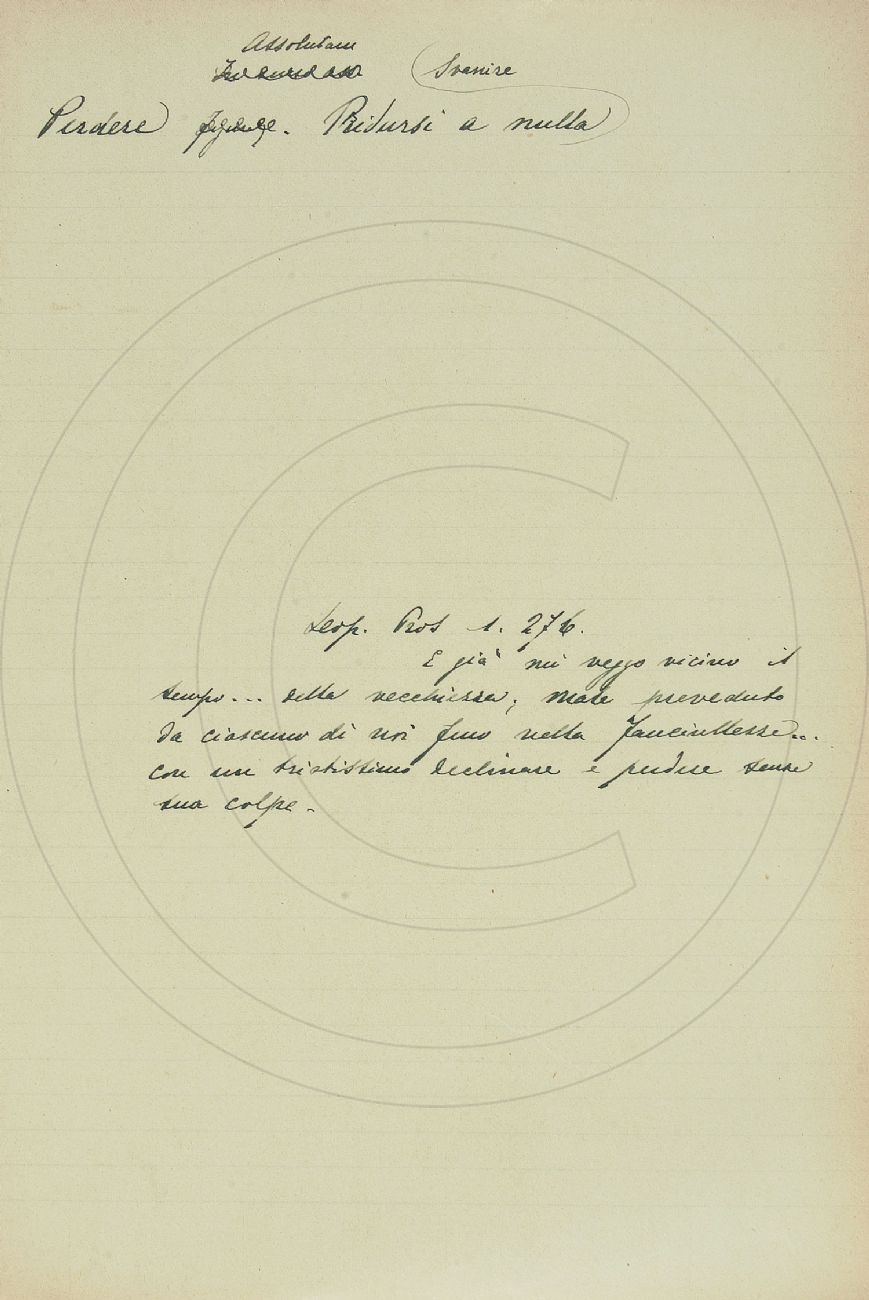 Assolutam
Svanire
Perdere . Ridursi a nulla
Leop. Pros 1. 276.
E già mi veggo vicino il
tempo... della vecchiezza; male preveduto
da ciascuno di noi fino nella fanciullezza...
con un tristissimo declinare e perdere senza
sua colpa.